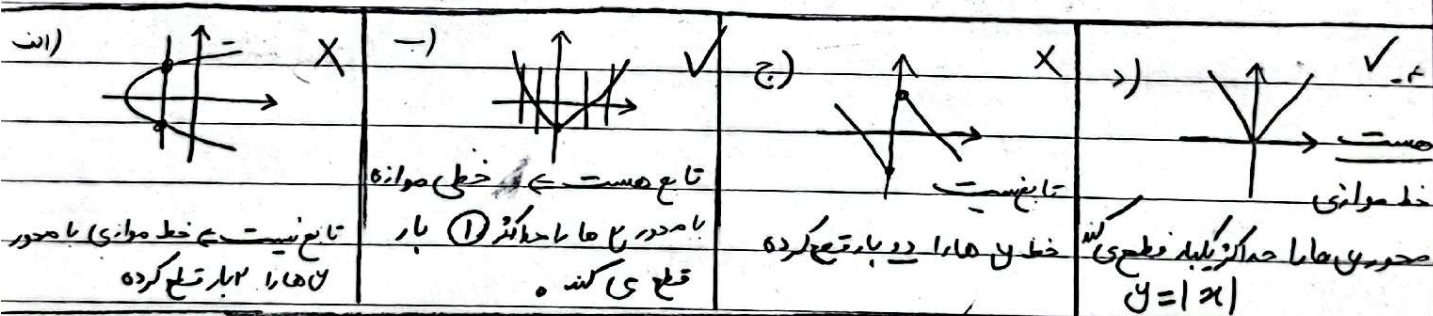 الف) ×
تابع نیست ⇐ خط موازی با محور
y ها را ۲ بار قطع کرده
ب) ✓
تابع هست ⇐ خطی موازه
با محور y ها را حداکثر ① بار
قطع می کند .
ج) ×
تابع نیست
خط y ها را دو بار قطع کرده
د) ✓
هست
خط موازی
محور y ها را حداکثر یکبار قطع می کند
y=|x|